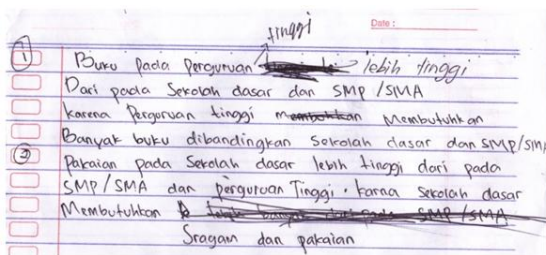 tinggi
Date :
① Buku pada perguruan lebih tinggi
Dari pada Sekolah dasar dan SMP/SMA
karena Perguruan tinggi Membutuhkan
Banyak buku dibandingkan Sekolah dasar dan SMP/SMA
② Pakaian pada Sekolah dasar lebih tinggi dari pada
SMP/SMA dan perguruan Tinggi. karna Sekolah dasar
Membutuhkan
Sragam dan pakaian